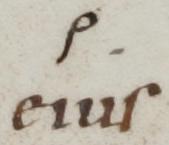 ſ
eiuſ